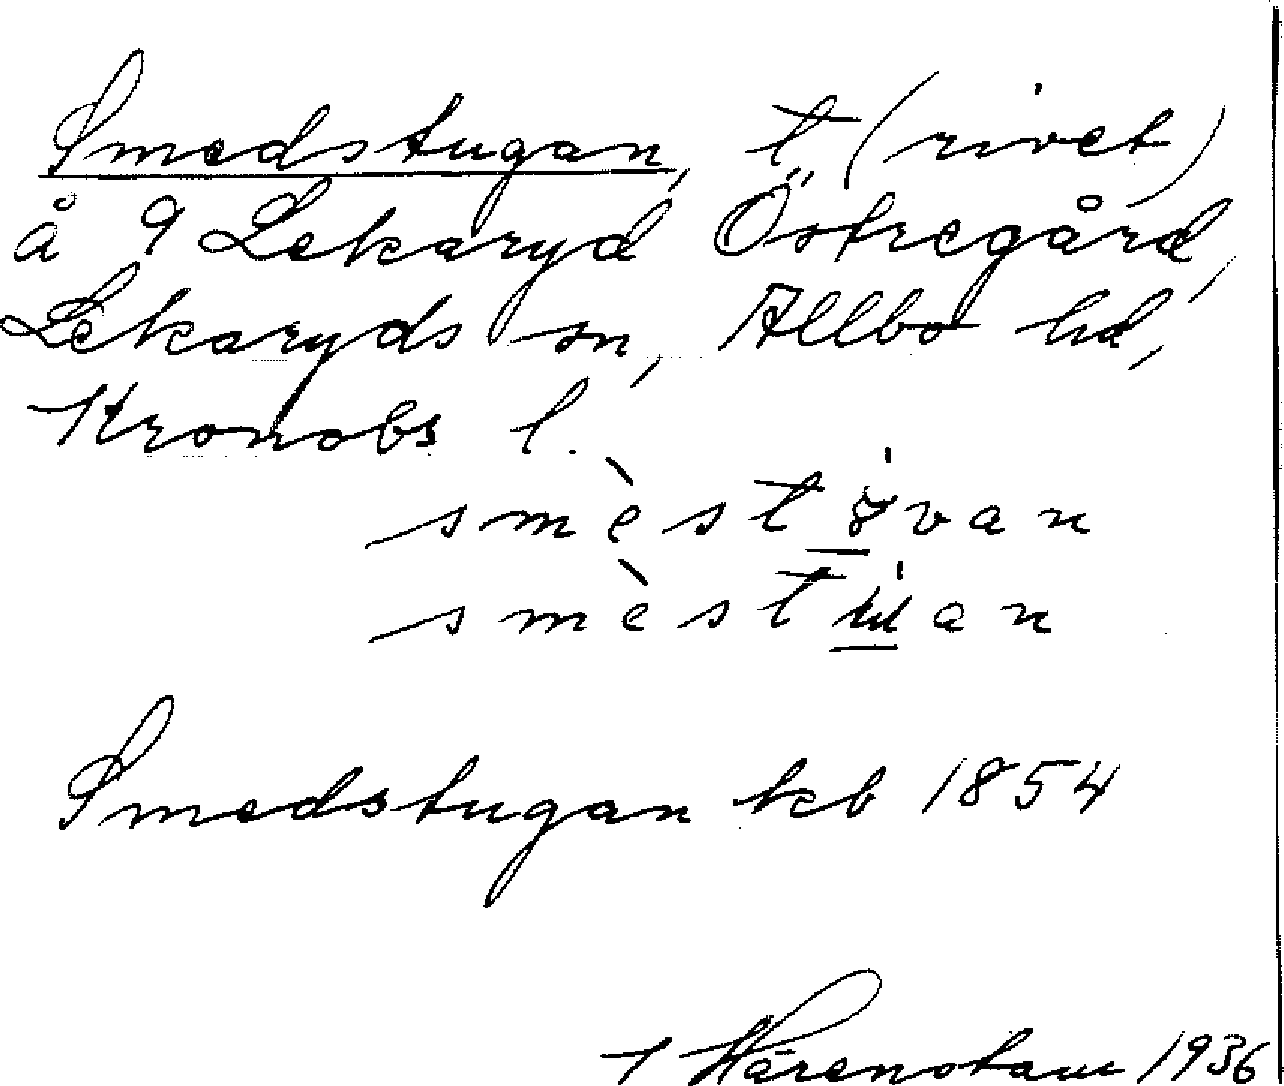 Smedstugan, t (rivet)
å 9 Lekaryd Östregård,
Lekaryds sn, Allbo hd,
Kronobs l.
smèst ɤ́van
smèst ɯ́an
Smedstugan kb 1854
Härenstam 1936